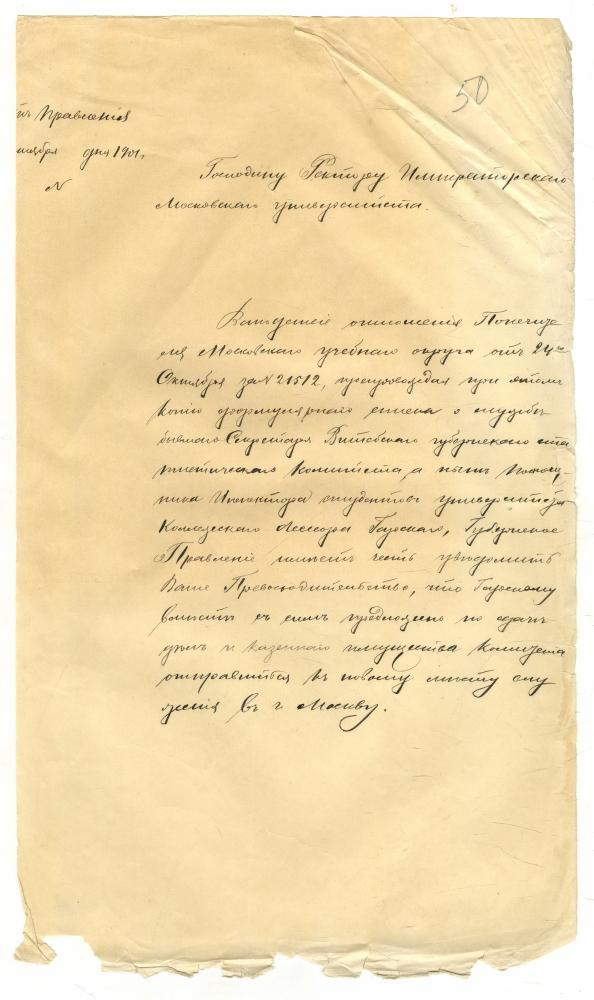 50
Правленія
дня 1901 г.
N
Господину Ректору Императорскаго
Московскаго университета.
отношенія Попечите
ля Московскаго учебнаго округа отъ 24го
Октября за N 21512, препровождая при этомъ
копію формулярнаго списка о службѣ
бывшаго Секретаря Витебскаго губернскаго ста
тистическаго Комитета, а нынѣ Помощ
ника Инспектора студентовъ университета
Коллежскаго Ассесора Губернское
Правленіе имѣетъ честь увѣдомить
Ваше Превосходительство, что
вмѣстѣ съ симъ предложено по сдачѣ
дѣлъ и казеннаго имущества Комитета
отправиться къ новому мѣсту слу
женія въ г. Москву.